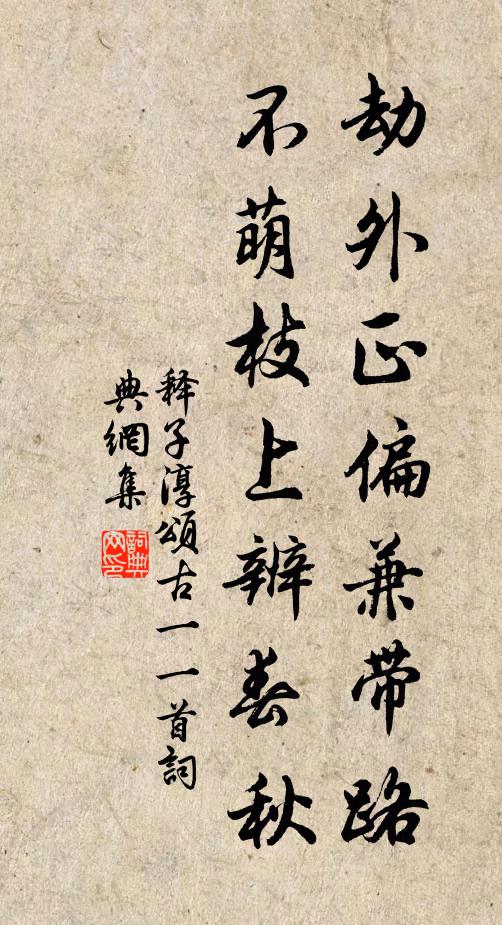 劫外正偏兼带路
不萌枝上辨春秋
释子淳頌古一一首詞
典網集
詞典
网印